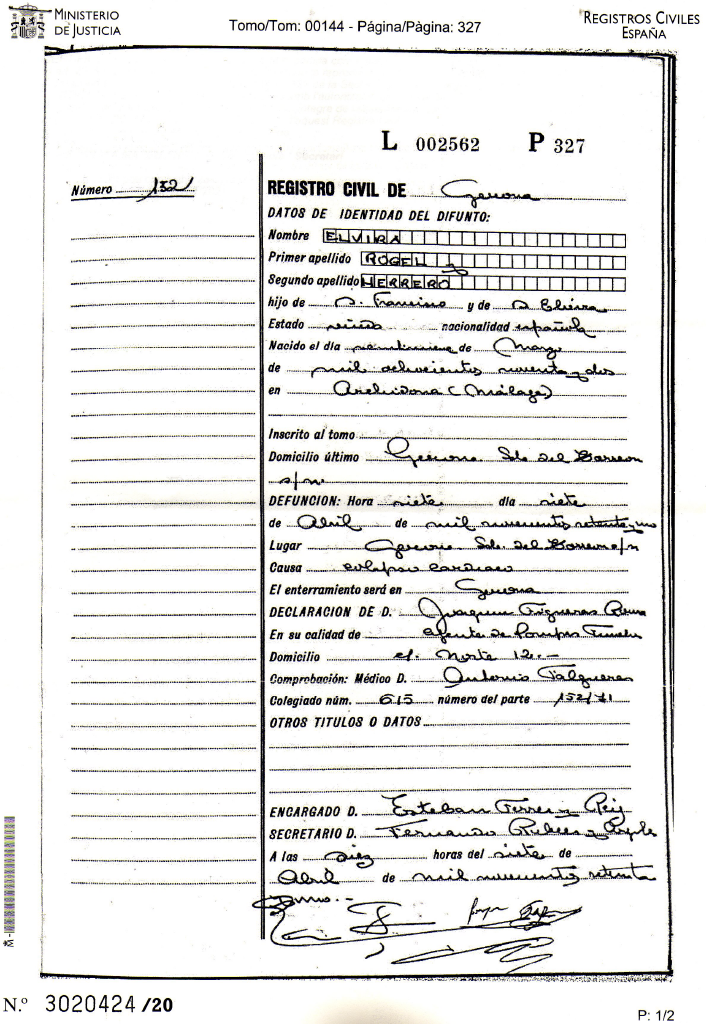 MINISTERIO
DE JUSTICIA
Tomo/Tom: 00144 - Página/Pàgina: 327
REGISTROS CIVILES
ESPAÑA
L 002562 P 327
Número 152
REGISTRO CIVIL DE Gerona
DATOS DE IDENTIDAD DEL DIFUNTO:
Nombre ELVIRA
Primer apellido ROGEL y
Segundo apellido HERRERO
hijo de D. Francisco y de D. Elvira
Estado viuda nacionalidad española
Nacido el día de Marzo
de mil ochocientos noventa y dos
en Archidona (Málaga)
Inscrito al tomo
Domicilio último Gerona Sda. del
s/n.
DEFUNCION: Hora siete día siete
de Abril de mil novecientos setenta y uno
Lugar Gerona Sda. del s/n
Causa colapso cardiaco
El enterramiento será en Gerona
DECLARACION DE D. Joaquin Figueras
En su calidad de agente de Pompas Funebres
Domicilio c/. Norte 12.-
Comprobación: Médico D. Antonio Falgueras
Colegiado núm. 615 número del parte 152/71
OTROS TITULOS O DATOS
ENCARGADO D. Esteban Ferrer y
SECRETARIO D. Fernando
A las diez horas del siete de
Abril de mil novecientos setenta
y uno.-
M-
N.º 3020424 /20
P: 1/2